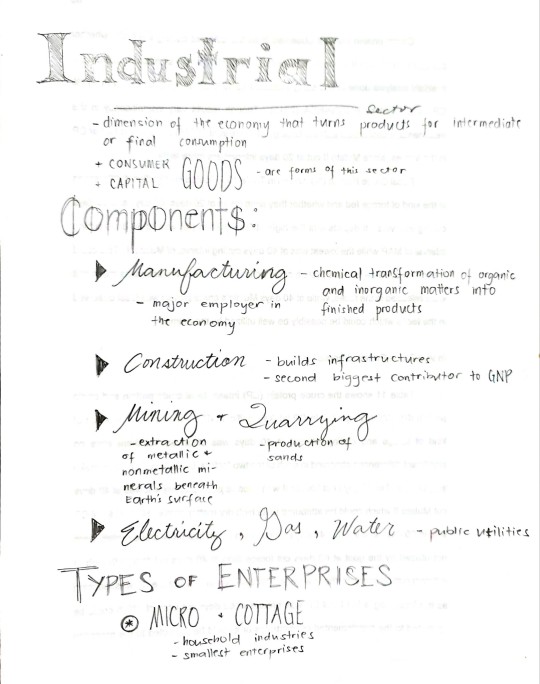 Industrial
sector
- dimension of the economy that turns products for intermediate
or final consumption
+ CONSUMER
+ CAPITAL GOODS - are forms of this sector
Component$:
Manufacturing - chemical transformation of organic
and inorganic matters into
finished products
- major employer in
the economy
Construction - builds infrastructures
- second biggest contributor to GNP
Mining + Quarrying
- extraction
of metallic +
nonmetallic mi-
nerals beneath
Earth's surface
- production of
sands
Electricity, Gas, Water - public utilities
TYPES OF ENTERPRISES
MICRO + COTTAGE
- household industries
- smallest enterprises